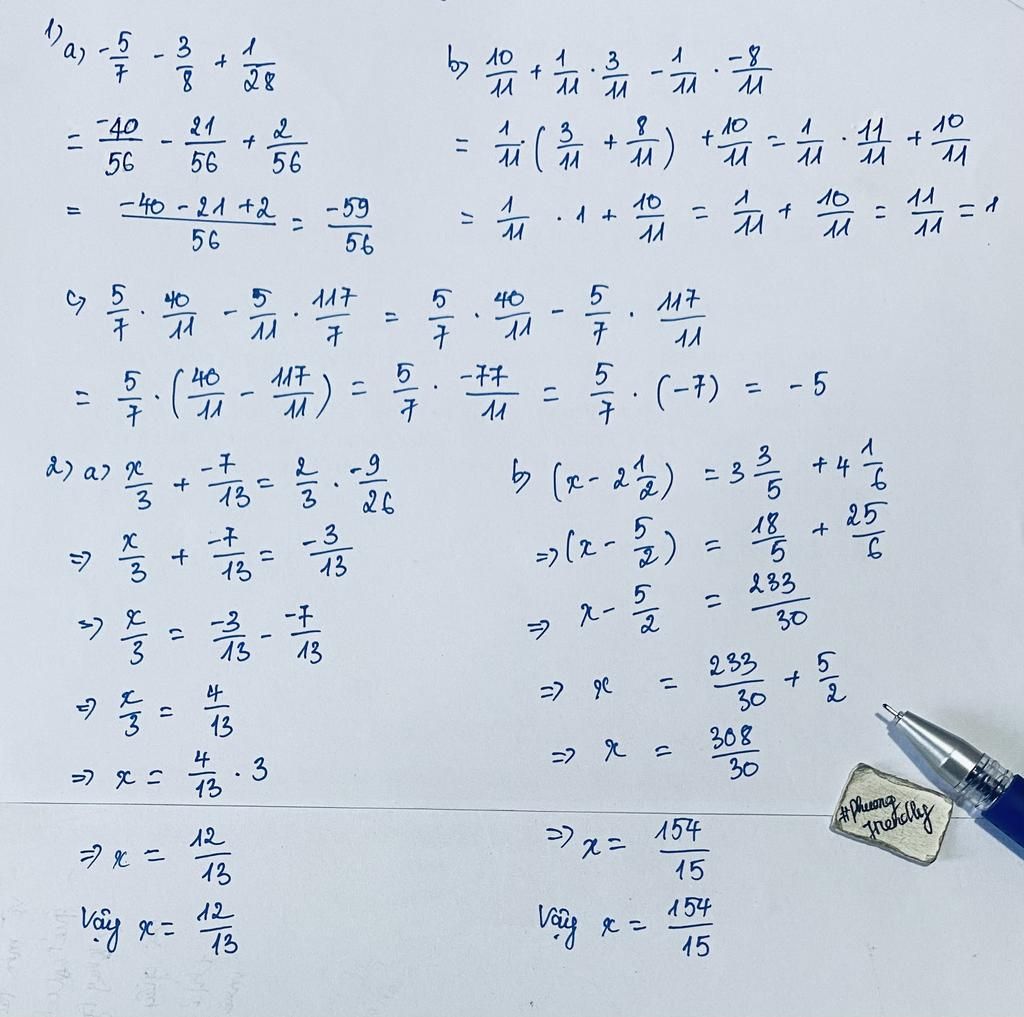 1) a, -5/7 - 3/8 + 1/28
= -40/56 - 21/56 + 2/56
= (-40 - 21 + 2)/56 = -59/56
b, 10/11 + 1/11 . 3/11 - 1/11 . -8/11
= 1/11 . (3/11 + 8/11) + 10/11 = 1/11 . 11/11 + 10/11
= 1/11 . 1 + 10/11 = 1/11 + 10/11 = 11/11 = 1
c, 5/7 . 40/11 - 5/11 . 117/7 = 5/7 . 40/11 - 5/7 . 117/11
= 5/7 . (40/11 - 117/11) = 5/7 . -77/11 = 5/7 . (-7) = -5
2) a, x/3 + -7/13 = 2/3 . -9/26
=> x/3 + -7/13 = -3/13
=> x/3 = -3/13 - -7/13
=> x/3 = 4/13
=> x = 4/13 . 3
=> x = 12/13
Vậy x = 12/13
b, (x - 2 1/2) = 3 3/5 + 4 1/6
=> (x - 5/2) = 18/5 + 25/6
=> x - 5/2 = 233/30
=> x = 233/30 + 5/2
=> x = 308/30
=> x = 154/15
Vậy x = 154/15
#Phuong
friendly